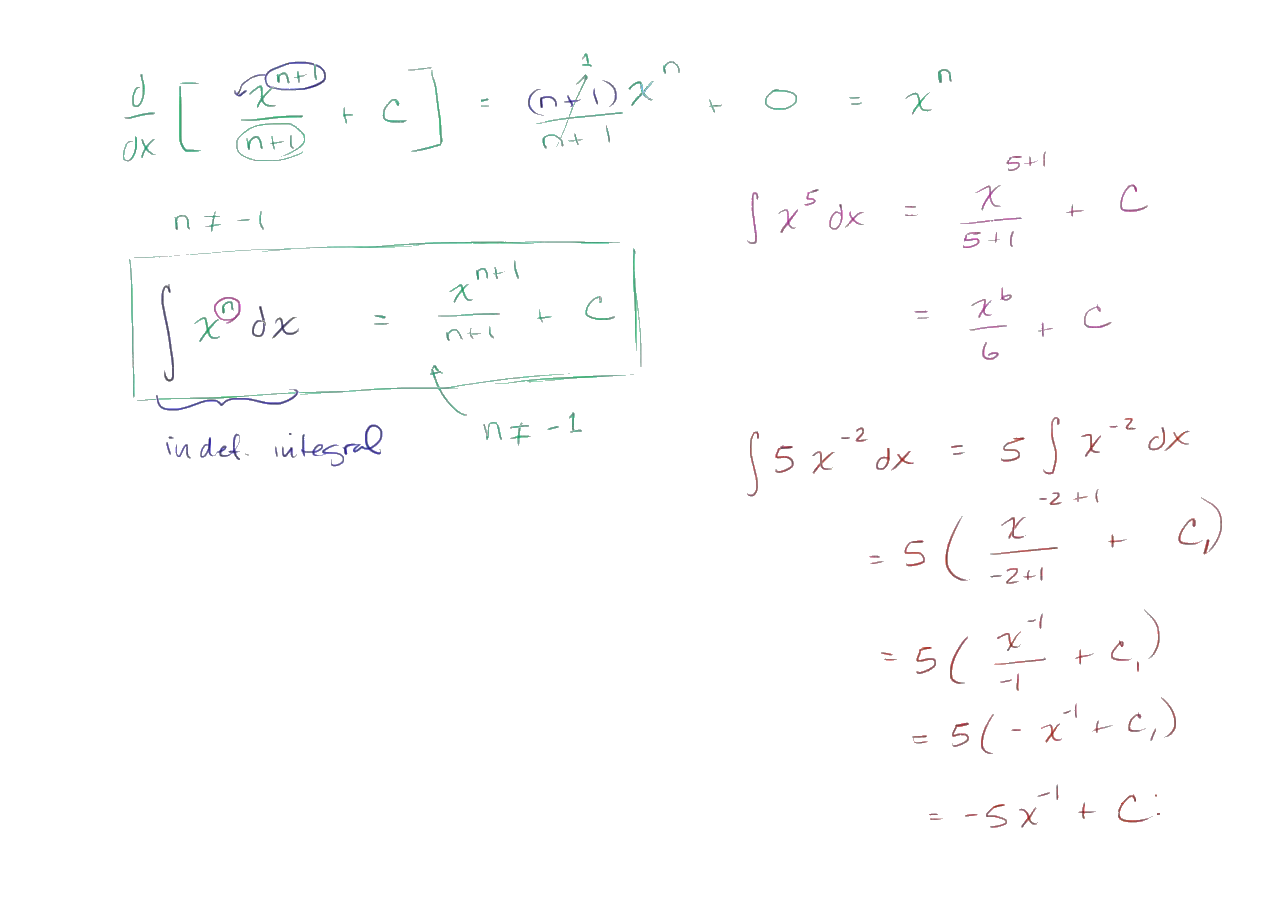 d/dx [ x^(n+1)/(n+1) + C ] = (n+1)x^n/(n+1) 1 + 0 = x^n
n ≠ -1
∫ x^n dx = x^(n+1)/(n+1) + C
indef. integral
n ≠ -1
∫ x^5 dx = x^(5+1)/(5+1) + C
= x^6/6 + C
∫ 5 x^(-2) dx = 5 ∫ x^(-2) dx
= 5 ( x^(-2+1)/(-2+1) + C₁ )
= 5 ( x^(-1)/(-1) + C₁ )
= 5 ( - x^(-1) + C₁ )
= -5x^(-1) + C